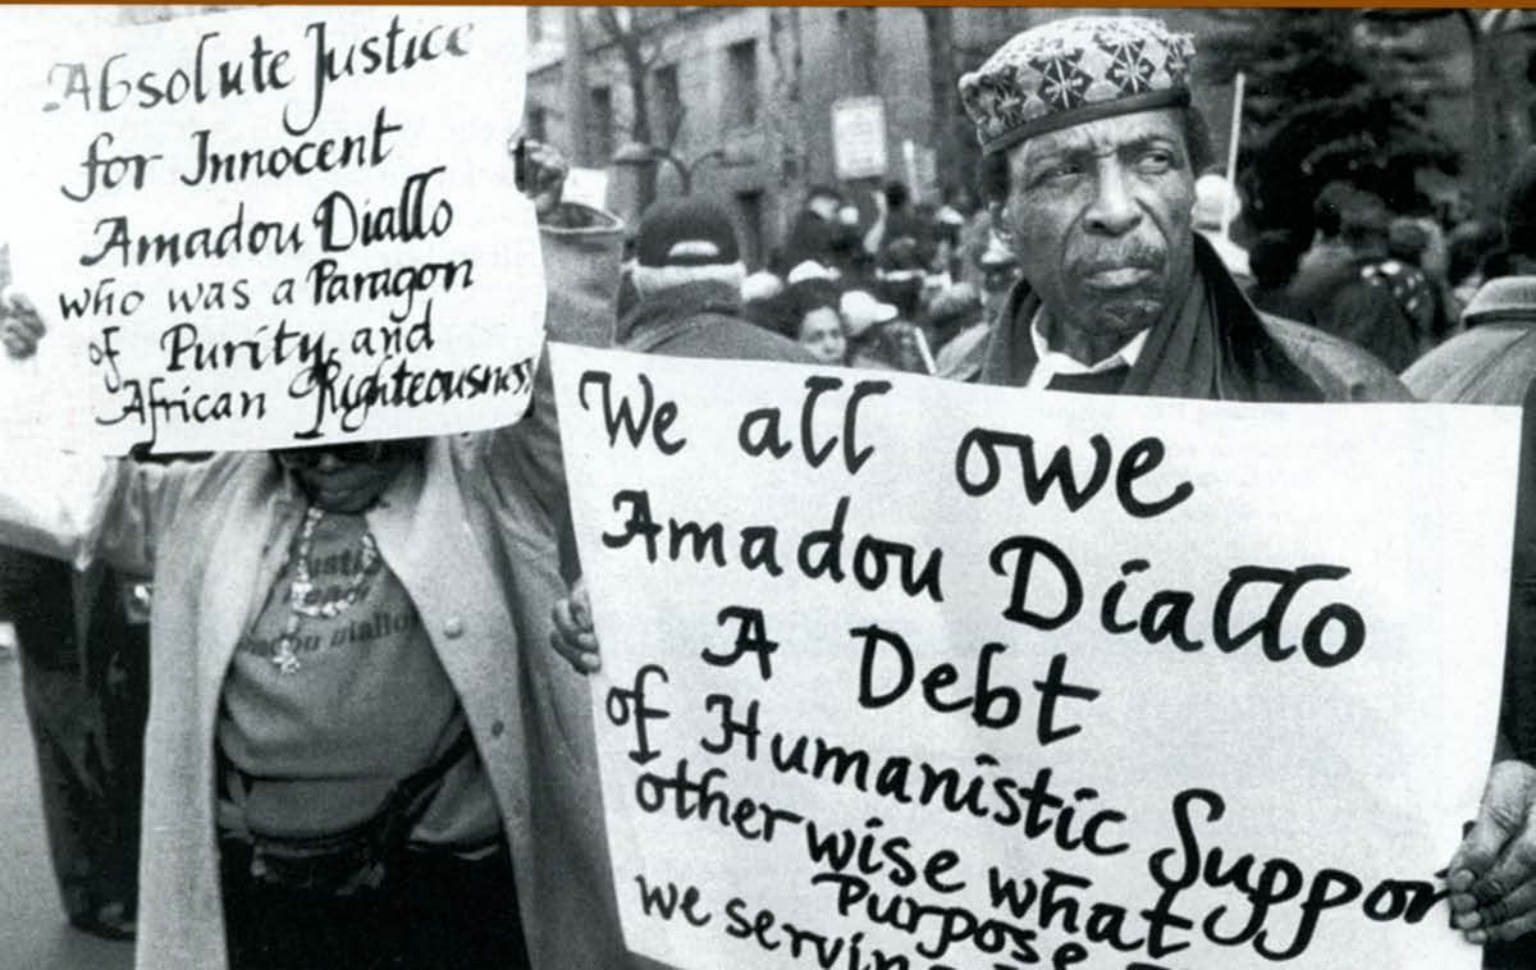 Absolute Justice
for Innocent
Amadou Diallo
who was a Paragon
of Purity and
African Righteousness
We all owe
Amadou Diallo
A Debt
of Humanistic Suppor
otherwise what
Purpose
we servin